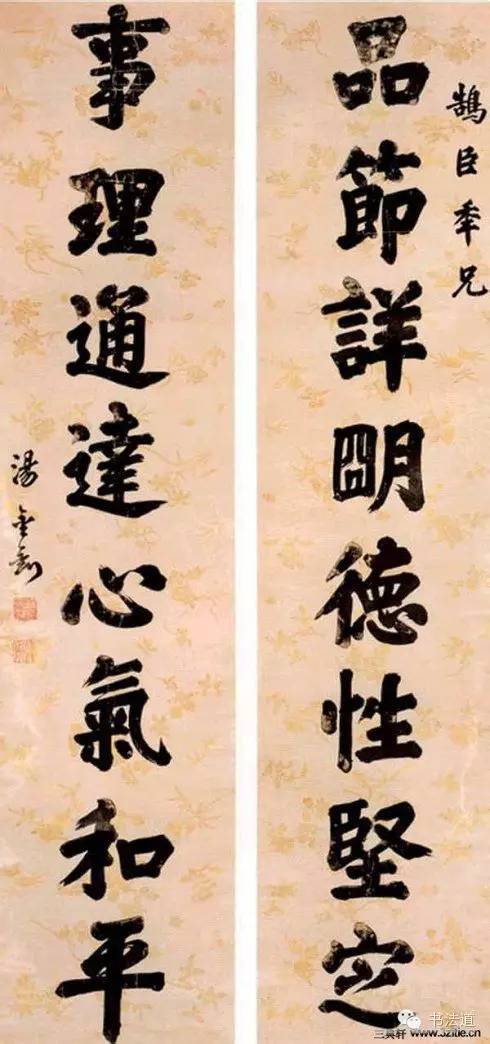 鵠臣秊兄
品節詳朙德性堅定
事理通達心氣和平
湯金釗
书法道
三典轩 www.3zitie.cn